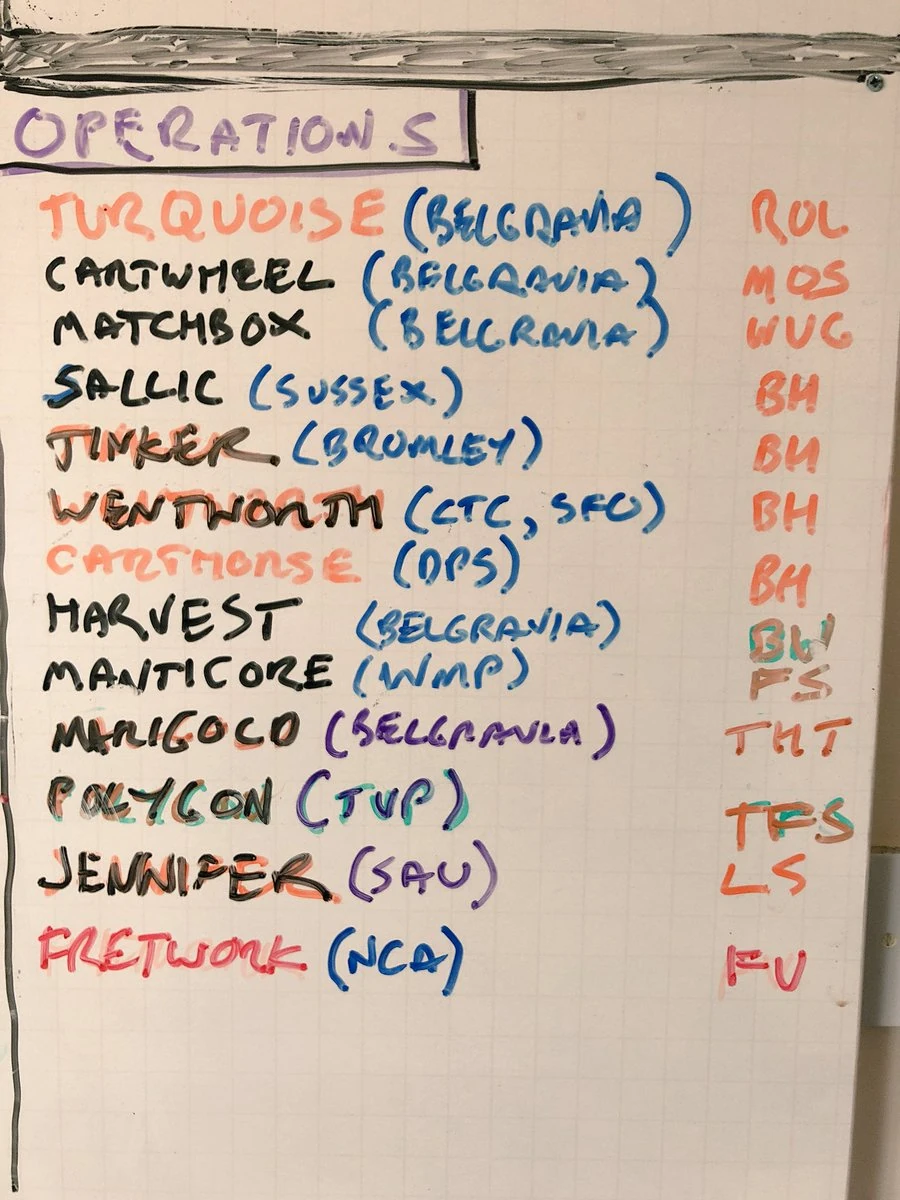 OPERATIONS
TURQUOISE (BELGRAVIA) ROL
CARTWHEEL (BELGRAVIA) MOS
MATCHBOX (BELGRAVIA) WUG
SALLIC (SUSSEX) BH
TINKER (BROMLEY) BH
WENTWORTH (CTC, SFO) BH
CARTHORSE (DPS) BH
HARVEST (BELGRAVIA) BW
MANTICORE (WMP) FS
MARIGOLD (BELGRAVIA) THT
POLYGON (TVP) TFS
JENNIFER (SAU) LS
FRETWORK (NCA) FU